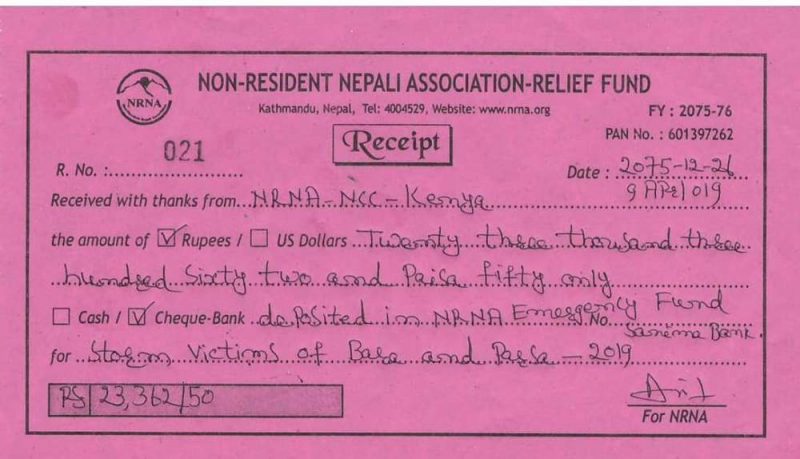 NRNA
NON-RESIDENT NEPALI ASSOCIATION-RELIEF FUND
Kathmandu, Nepal, Tel: 4004529, Website: www.nrna.org
FY : 2075-76
PAN No. : 601397262
Receipt
R. No. : 021
Date : 2075-12-26
9 APR/019
Received with thanks from NRNA-NCC-Kenya
the amount of ☑ Rupees / ☐ US Dollars Twenty three thousand three
hundred Sixty two and Paisa fifty only
☐ Cash / ☑ Cheque-Bank deposited in NRNA Emergency Fund
No. Sanima Bank.
for Storm Victims of Bara and Parsa - 2019
RS 23,362/50
For NRNA